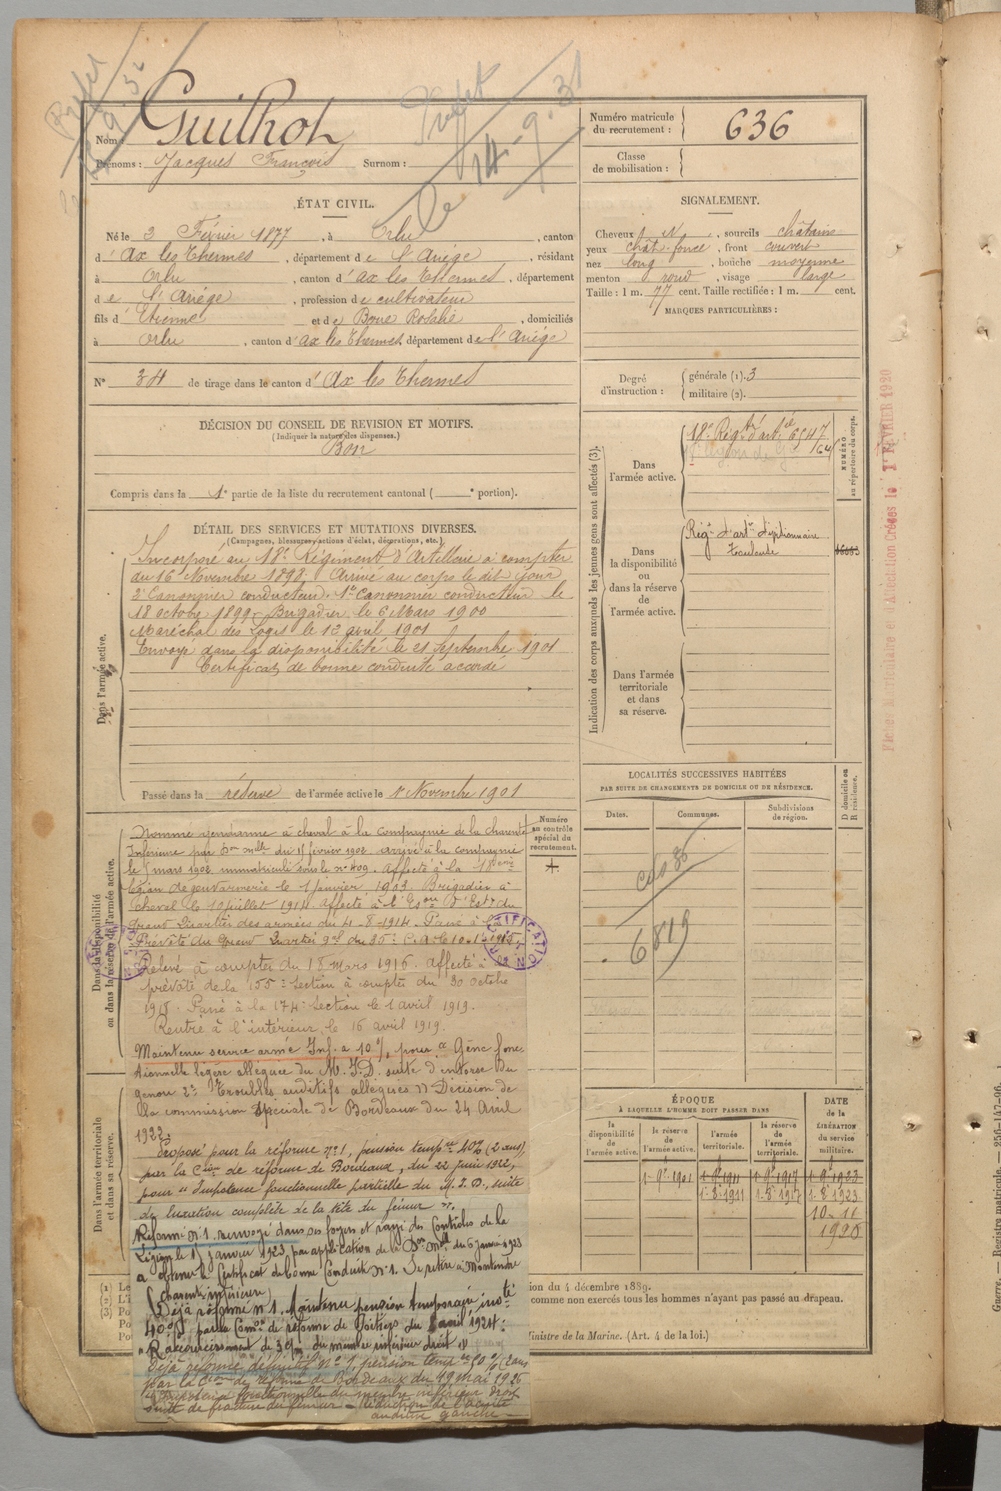 Nom : Guilhot
Prénoms : Jacques François Surnom :
14-9.31
Numéro matricule
du recrutement : 636
Classe
de mobilisation :
ÉTAT CIVIL.
Né le 2 Février 1877, à Orlu, canton
d'Ax les Thermes, département de l'Ariége, résidant
à Orlu, canton d'ax les Thermes, département
de l'Ariége, profession de cultivateur
fils d'Etienne et de Boue Rosalie, domiciliés
à Orlu, canton d'ax les Thermes, département de l'Ariége
N° 34 de tirage dans le canton d'Ax les Thermes
SIGNALEMENT.
Cheveux N, sourcils châtains
yeux chât. foncé, front couvert
nez long, bouche moyenne
menton rond, visage large
Taille : 1 m. 77 cent. Taille rectifiée : 1 m. cent.
MARQUES PARTICULIÈRES :
Degré
d'instruction : générale (1). 3
militaire (2).
DÉCISION DU CONSEIL DE REVISION ET MOTIFS.
(Indiquer la nature des dispenses.)
Bon
Compris dans la 1e partie de la liste du recrutement cantonal ( e portion).
DÉTAIL DES SERVICES ET MUTATIONS DIVERSES.
(Campagnes, blessures, actions d'éclat, décorations, etc.)
Dans l'armée active.
Incorporé au 18e Régiment d'Artillerie à compter
du 16 Novembre 1898, Arrivé au corps le dit jour
2e Canonnier conducteur. 1er Canonnier conducteur le
18 octobre 1899. Brigadier le 6 Mars 1900
Maréchal des Logis le 12 avril 1901
Envoyé dans la disponibilité le 21 Septembre 1901
Certificat de bonne conduite accordé
Passé dans la réserve de l'armée active le 1 Novembre 1901
Indication des corps auxquels les jeunes gens sont affectés (3).
Dans
l'armée active.
18e Régt d'artie 6547
NUMÉRO
au répertoire du corps.
Dans
la disponibilité
ou
dans la réserve
de
l'armée active.
Régt d'artie Divisionnaire
Toulouse
Dans l'armée
territoriale
et dans
sa réserve.
Fiches Matriculaire et d'Affectation Créées le 1er FÉVRIER 1920
LOCALITÉS SUCCESSIVES HABITÉES
PAR SUITE DE CHANGEMENTS DE DOMICILE OU DE RÉSIDENCE.
Dates.
Communes.
Subdivisions
de région.
D domicile ou
R résidence.
6819
Numéro
au contrôle
spécial du
recrutement.
Dans la disponibilité
ou dans la réserve de l'armée active.
Nommé gendarme à cheval à la compagnie de la Charente
Inférieure par Don mlle du 15 février 1902. arrivé à la compagnie
le 5 mars 1902 immatriculé sous le n° 409. Affecté à la 18ème
Légion de gendarmerie le 1 janvier 1903. Brigadier à
cheval le 10 juillet 1914. affecté à l'
Grand Quartier des armées du 4-8-1914. Passé à la
Prévôté du Grand Quartier gal du 35e C.A. le 10.1.1915
Relevé à compter du 18 mars 1916. affecté à
prévôté de la 155e Section à compter du 30 octobre
1918. Passé à la 174e Section le 1 avril 1919.
Rentré à l'intérieur le 16 avril 1919.
Dans l'armée territoriale
et dans sa réserve.
Maintenu service armé Inf. à 10%, pour "Gêne fonc-
tionnelle légère alléguée du M.I.D. suite d'entorse du
genou 2° Troubles auditifs allégués" Décision de
la commission spéciale de Bordeaux du 24 Avril
1922.
Proposé pour la réforme n°1, pension tempre 40% (2 ans)
par la Cion de réforme de Bordeaux, du 22 juin 1922,
pour "Impotence fonctionnelle partielle du M.I.D., suite
de luxation complète de la tête du fémur".
Réformé N°1. renvoyé dans ses foyers et rayé des Contrôles de la
Légion le 15 janvier 1923, par application de la Don Mlle du 6 janvier 1923
a obtenu le Certificat de bonne Conduite N°1. Se retire à Montendre
(Charente inférieure)
Déjà réformé n°1. Maintenu pension temporaire invté
40% par la Comon de réforme de Poitiers du avril 1924:
"Raccourcissement de 3 c/m du membre inférieur droit"
Déjà réformé définitif N°1, pension temp re 50% (2 ans)
par la Con de réforme de Bordeaux du 19 mai 1926
Impotence fonctionnelle du membre inférieur droit
suite de fracture du fémur - Réduction de l'acuité
auditive gauche
ÉPOQUE
À LAQUELLE L'HOMME DOIT PASSER DANS
la
disponibilité
de
l'armée active.
la réserve
de
l'armée active.
l'armée
territoriale.
la réserve
de
l'armée
territoriale.
DATE
de la
LIBÉRATION
du service
militaire.
1-9e 1901
1-9e 1911
1-9e 1917
1-9e 1923
1-8e 1911
1-8e 1917
1-8 1923
10-11
1926
ion du 4 décembre 1889.
comme non exercés tous les hommes n'ayant pas passé au drapeau.
Ministre de la Marine. (Art. 4 de la loi.)
Guerre. — Registre matricule. — 256-147-96.